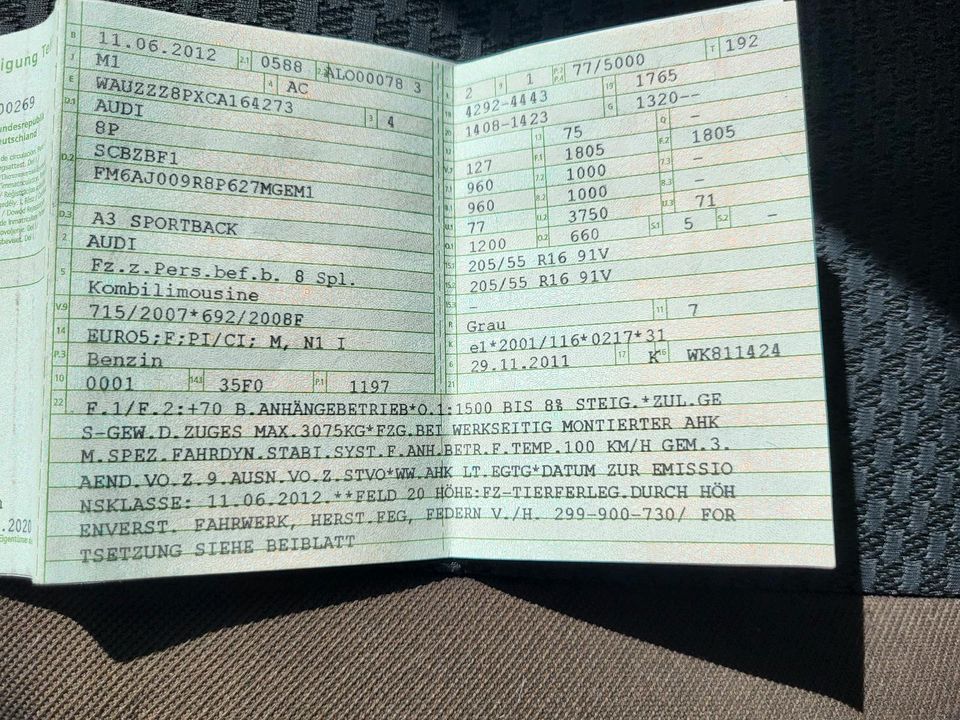 igung Te
00269
undesrepublik
eutschland
.2020
B 11.06.2012 2.1 0588 2.2 ALO00078 3
J M1 4 AC
E WAUZZZ8PXCA164273 3 4
D.1 AUDI
8P
D.2 SCBZBF1
FM6AJ009R8P627MGEM1
D.3 A3 SPORTBACK
2 AUDI
5 Fz.z.Pers.bef.b. 8 Spl.
Kombilimousine
V.9 715/2007*692/2008F
14 EURO5;F;PI/CI; M, N1 I
P.3 Benzin
10 0001 14.1 35F0 P.1 1197
L 2 9 1 P.2 P.4 77/5000 T 192
18 4292-4443 19 1765
20 1408-1423 G 1320--
12 - 13 75 Q -
V.7 127 F.1 1805 F.2 1805
7.1 960 7.2 1000 7.3 -
8.1 960 8.2 1000 8.3 -
U.1 77 U.2 3750 U.3 71
O.1 1200 O.2 660 S.1 5 S.2 -
15.1 205/55 R16 91V
15.2 205/55 R16 91V
15.3 -
R Grau 11 7
K e1*2001/116*0217*31
6 29.11.2011 17 K 16 WK811424
21
22 F.1/F.2:+70 B.ANHÄNGEBETRIEB*O.1:1500 BIS 8% STEIG.*ZUL.GE
S-GEW.D.ZUGES MAX.3075KG*FZG.BEI WERKSEITIG MONTIERTER AHK
M.SPEZ.FAHRDYN.STABI.SYST.F.ANH.BETR.F.TEMP.100 KM/H GEM.3.
AEND.VO.Z.9.AUSN.VO.Z.STVO*WW.AHK LT.EGTG*DATUM ZUR EMISSIO
NSKLASSE: 11.06.2012.**FELD 20 HÖHE:FZ-TIERFERLEG.DURCH HÖH
ENVERST. FAHRWERK, HERST.FEG, FEDERN V./H. 299-900-730/ FOR
TSETZUNG SIEHE BEIBLATT